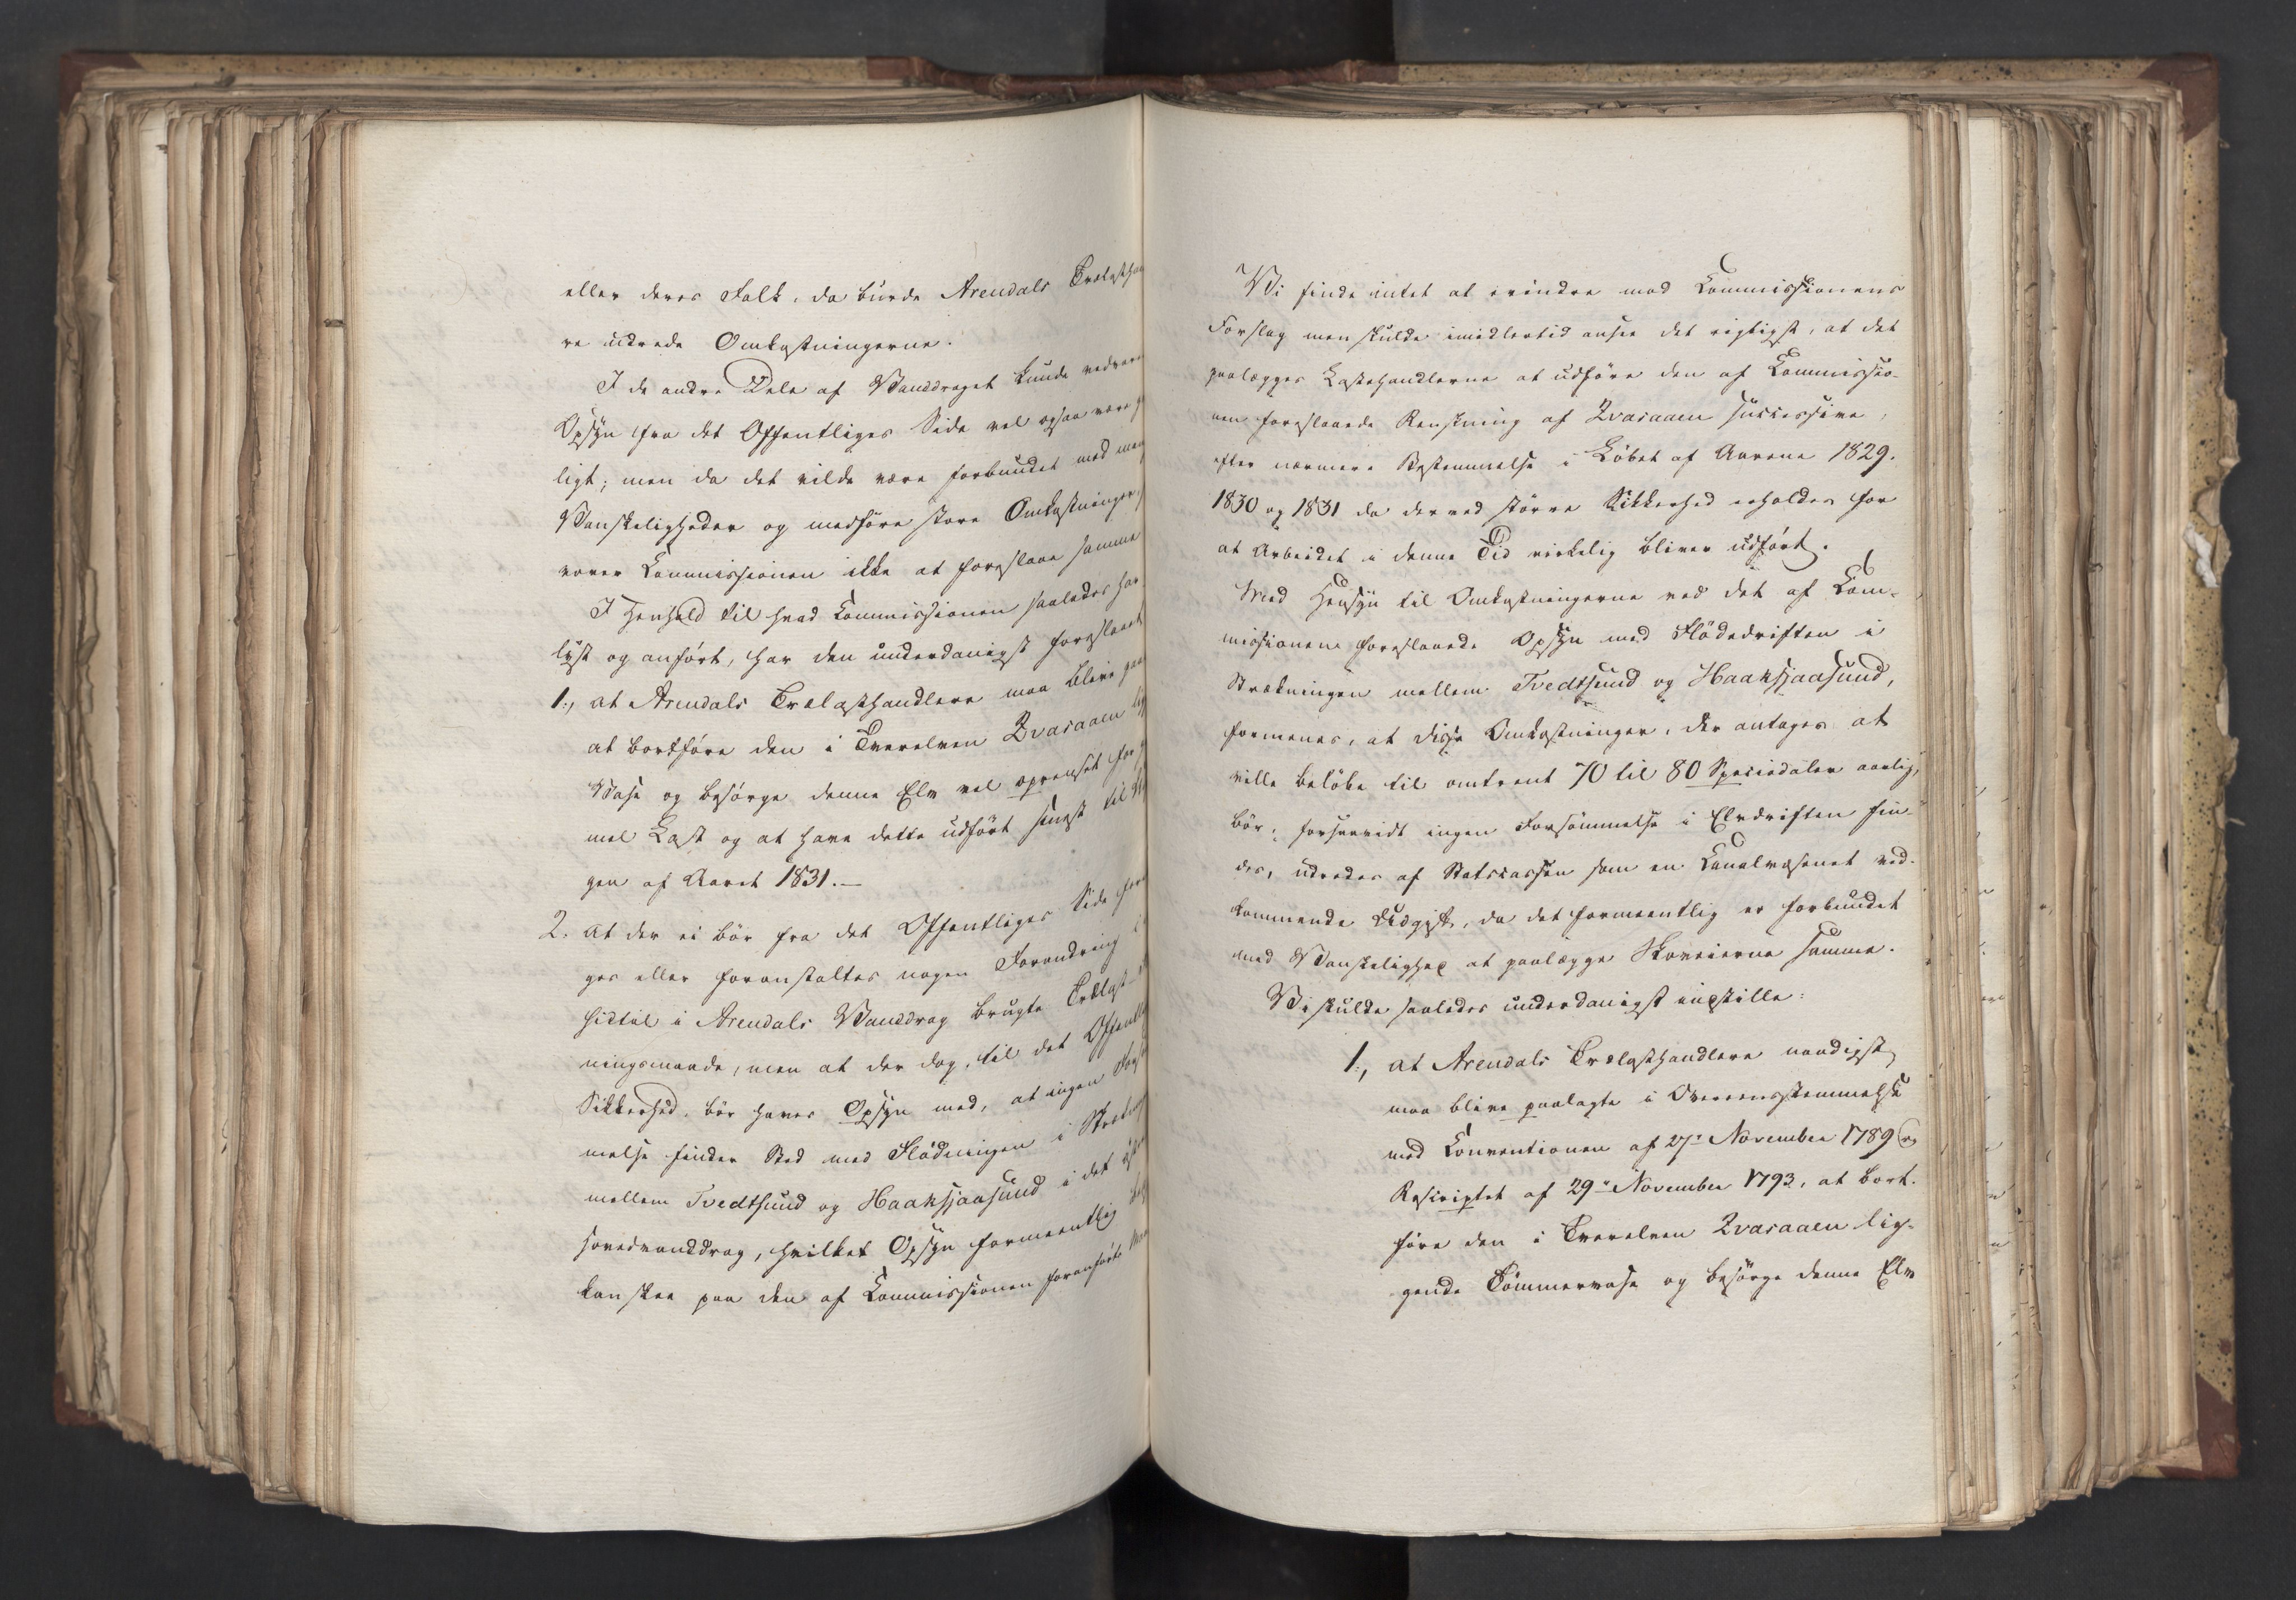 eller deres Folk, da burde Arendals Trælasthan
re udrede Omkostningerne.
I de andre Dele af Vanddraget kunde vedvare
Opsyn fra det Offentliges Side vel ogsaa være
ligt; men da det vilde være forbundet med
Vanskeligheder og medføre store Omkostninger,
vover Commissionen ikke at foreslaae samme
I Henhold til hvad Commissionen saaledes har
lyst og anført, har den underdanigst foreslaaet
1., at Arendals Trælasthandlere maa blive
at bortføre den i Tverelven Qvaraaen
Vase og besørge denne Elv vel oprenset for
mel Last og at have dette udført senest til
gen af Aaret 1831.—
2. at der ei bør fra det Offentliges Side
ges eller foranstaltes nogen Forandring
hidtil i Arendals Vanddrag brugte Trælast
ningsmaade, men at der dog, til det Offentl
Sikkerhed, bør haves Opsyn med, at ingen
melse finder Sted med Flødningen i
mellem Tvedtsund og Haaksjaasund i det
hovedvanddrag, hvilket Opsyn formeentlig
kan skee paa den af Commissionen foranførte
Vi finde intet at erindre mod Commissionens
Forslag men skulde imidlertid ansee det rigtigst, at det
paalægges Lasthandlerne at udføre den af Commissio-
nen foreslaaede Renskning af Qvaraaen successive,
efter nærmere Bestemmelse i Løbet af Aarene 1829.
1830 og 1831 da derved større Sikkerhed erholdes for
at Arbeidet i denne Tid virkelig bliver udført.
Med Hensyn til Omkostningerne ved det af Com-
missionen foreslaaede Opsyn med Flødedriften i
Strækningen mellem Tvedtsund og Haaksjaasund,
formenes, at disse Omkostninger, der antages at
ville beløbe til omtrent 70 til 80 Speciedaler aarlig,
bør, forsaavidt ingen Forsømmelse i Elvdriften fin-
des, udredes af Statscassen som en Canalvæsenet ved-
kommende Udgift, da det formeentlig er forbundet
med Vanskelighed at paalægge Skoveierne samme.
Vi skulde saaledes underdanigst indstille:
1., at Arendals Trælasthandlere naadigst
maa blive paalagte i Overeensstemmelse
med Conventionen af 27de November 1789 og
Rescriptet af 29de November 1793, at bort-
føre den i Tverelven Qvaraaen lig-
gende Tømmervase og besørge denne Elv